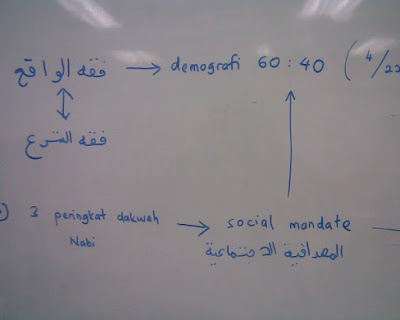 فقه الواقع → demografi 60 : 40 ( 4/22
فقه الشرع
3 peringkat dakwah Nabi → social mandate
المصداقية الاجتماعية